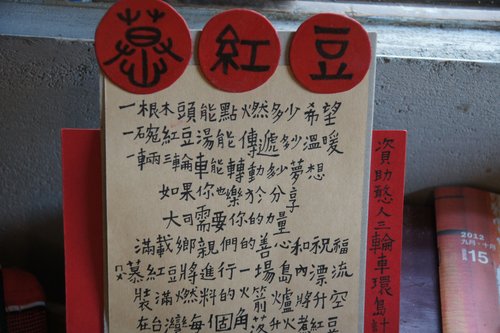 慕紅豆
一根木頭能點燃多少希望
一碗紅豆湯能傳遞多少溫暖
一輛三輪車能轉動多少夢想
如果你也樂於分享
大司需要你的力量
滿載鄉親們的善心和祝福
慕紅豆將進行一場島內漂流
裝滿燃料的火箭爐將升空
在台灣每個角落升火煮紅豆
資助憨人三輪車環島計
2012
九月・十月
15